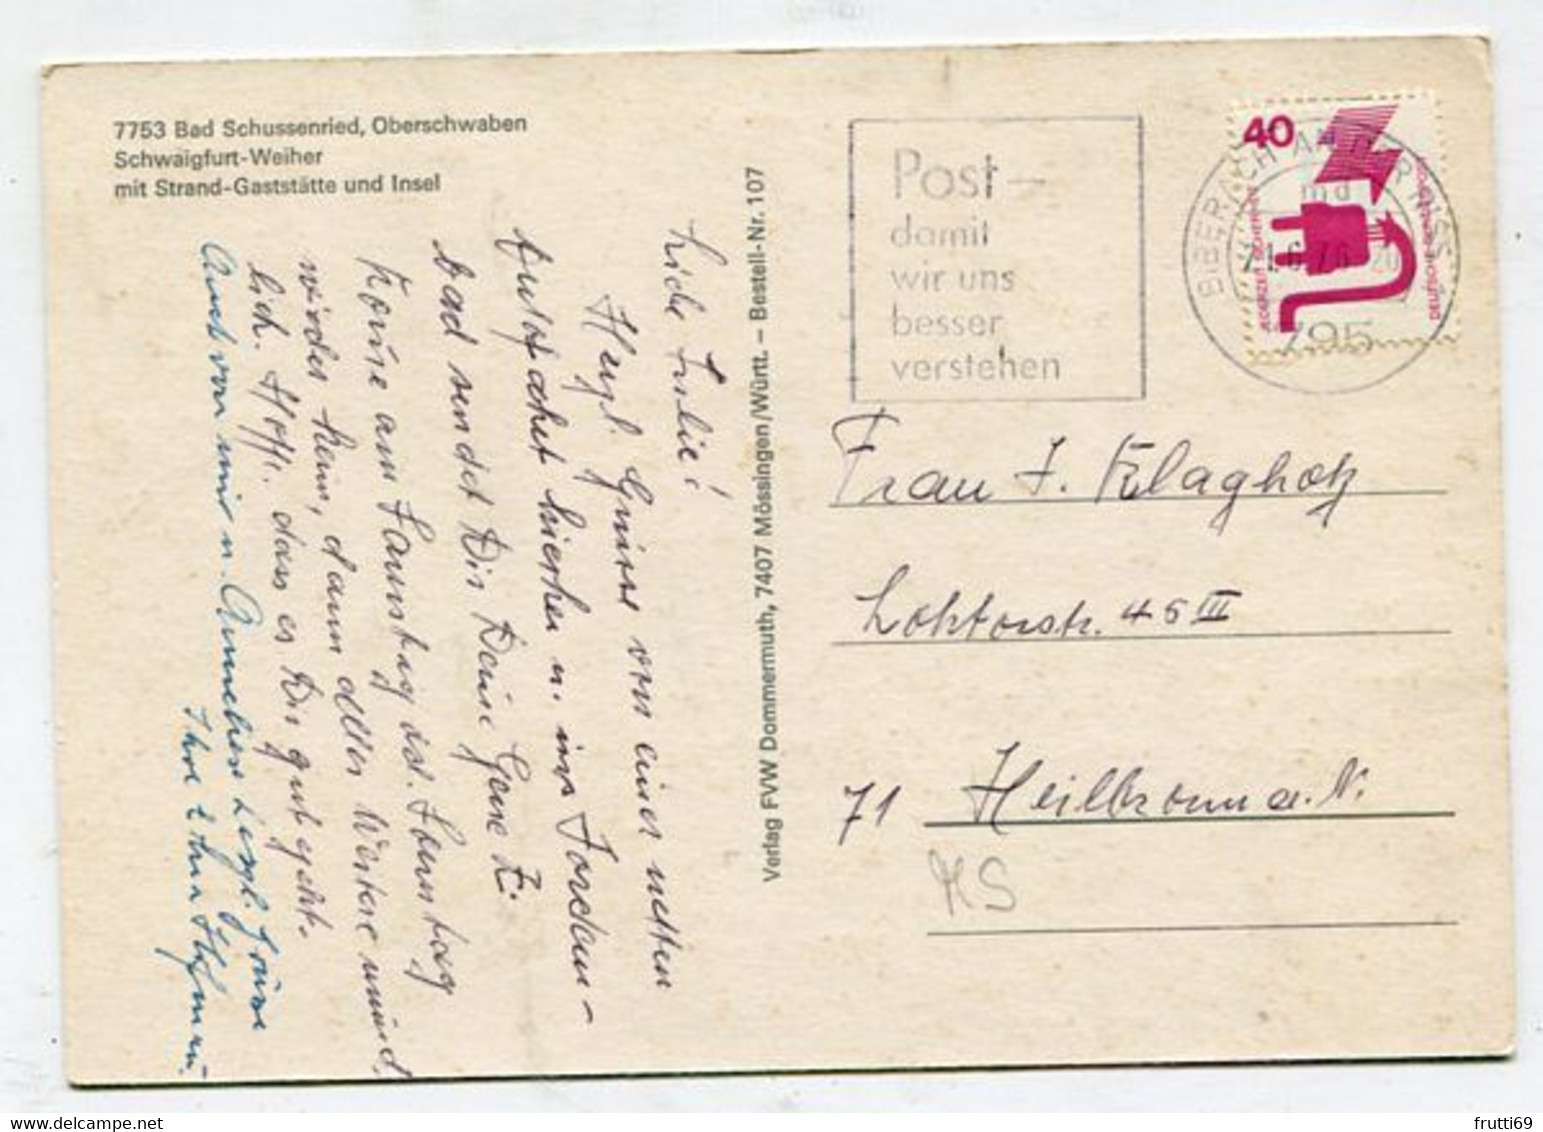 7753 Bad Schussenried, Oberschwaben
Schwaigfurt-Weiher
mit Strand-Gaststätte und Insel
Liebe Julie!
Herzl. Grüsse von einer netten
hierher u. ins Jordan-
bad sendet Dir Deine Gene
Komme am Samstag od. Sonntag
wieder heim, dann alles Weitere münd
lich. Hoffe dass es Dir gut geht.
Auch von mir u. Annchen herzl. Grüsse
Ihre
Verlag FVW Dommermuth, 7407 Mössingen/Württ. – Bestell-Nr. 107
Post –
damit
wir uns
besser
verstehen
BIBERACH AN DER RISS 1
md
795
40
JEDERZEIT SICHERHEIT
DEUTSCHE BUNDESPOST
Frau J. Klagholz
Lohtorstr. 45 III
71 Heilbronn a. N.
KS
frutti69